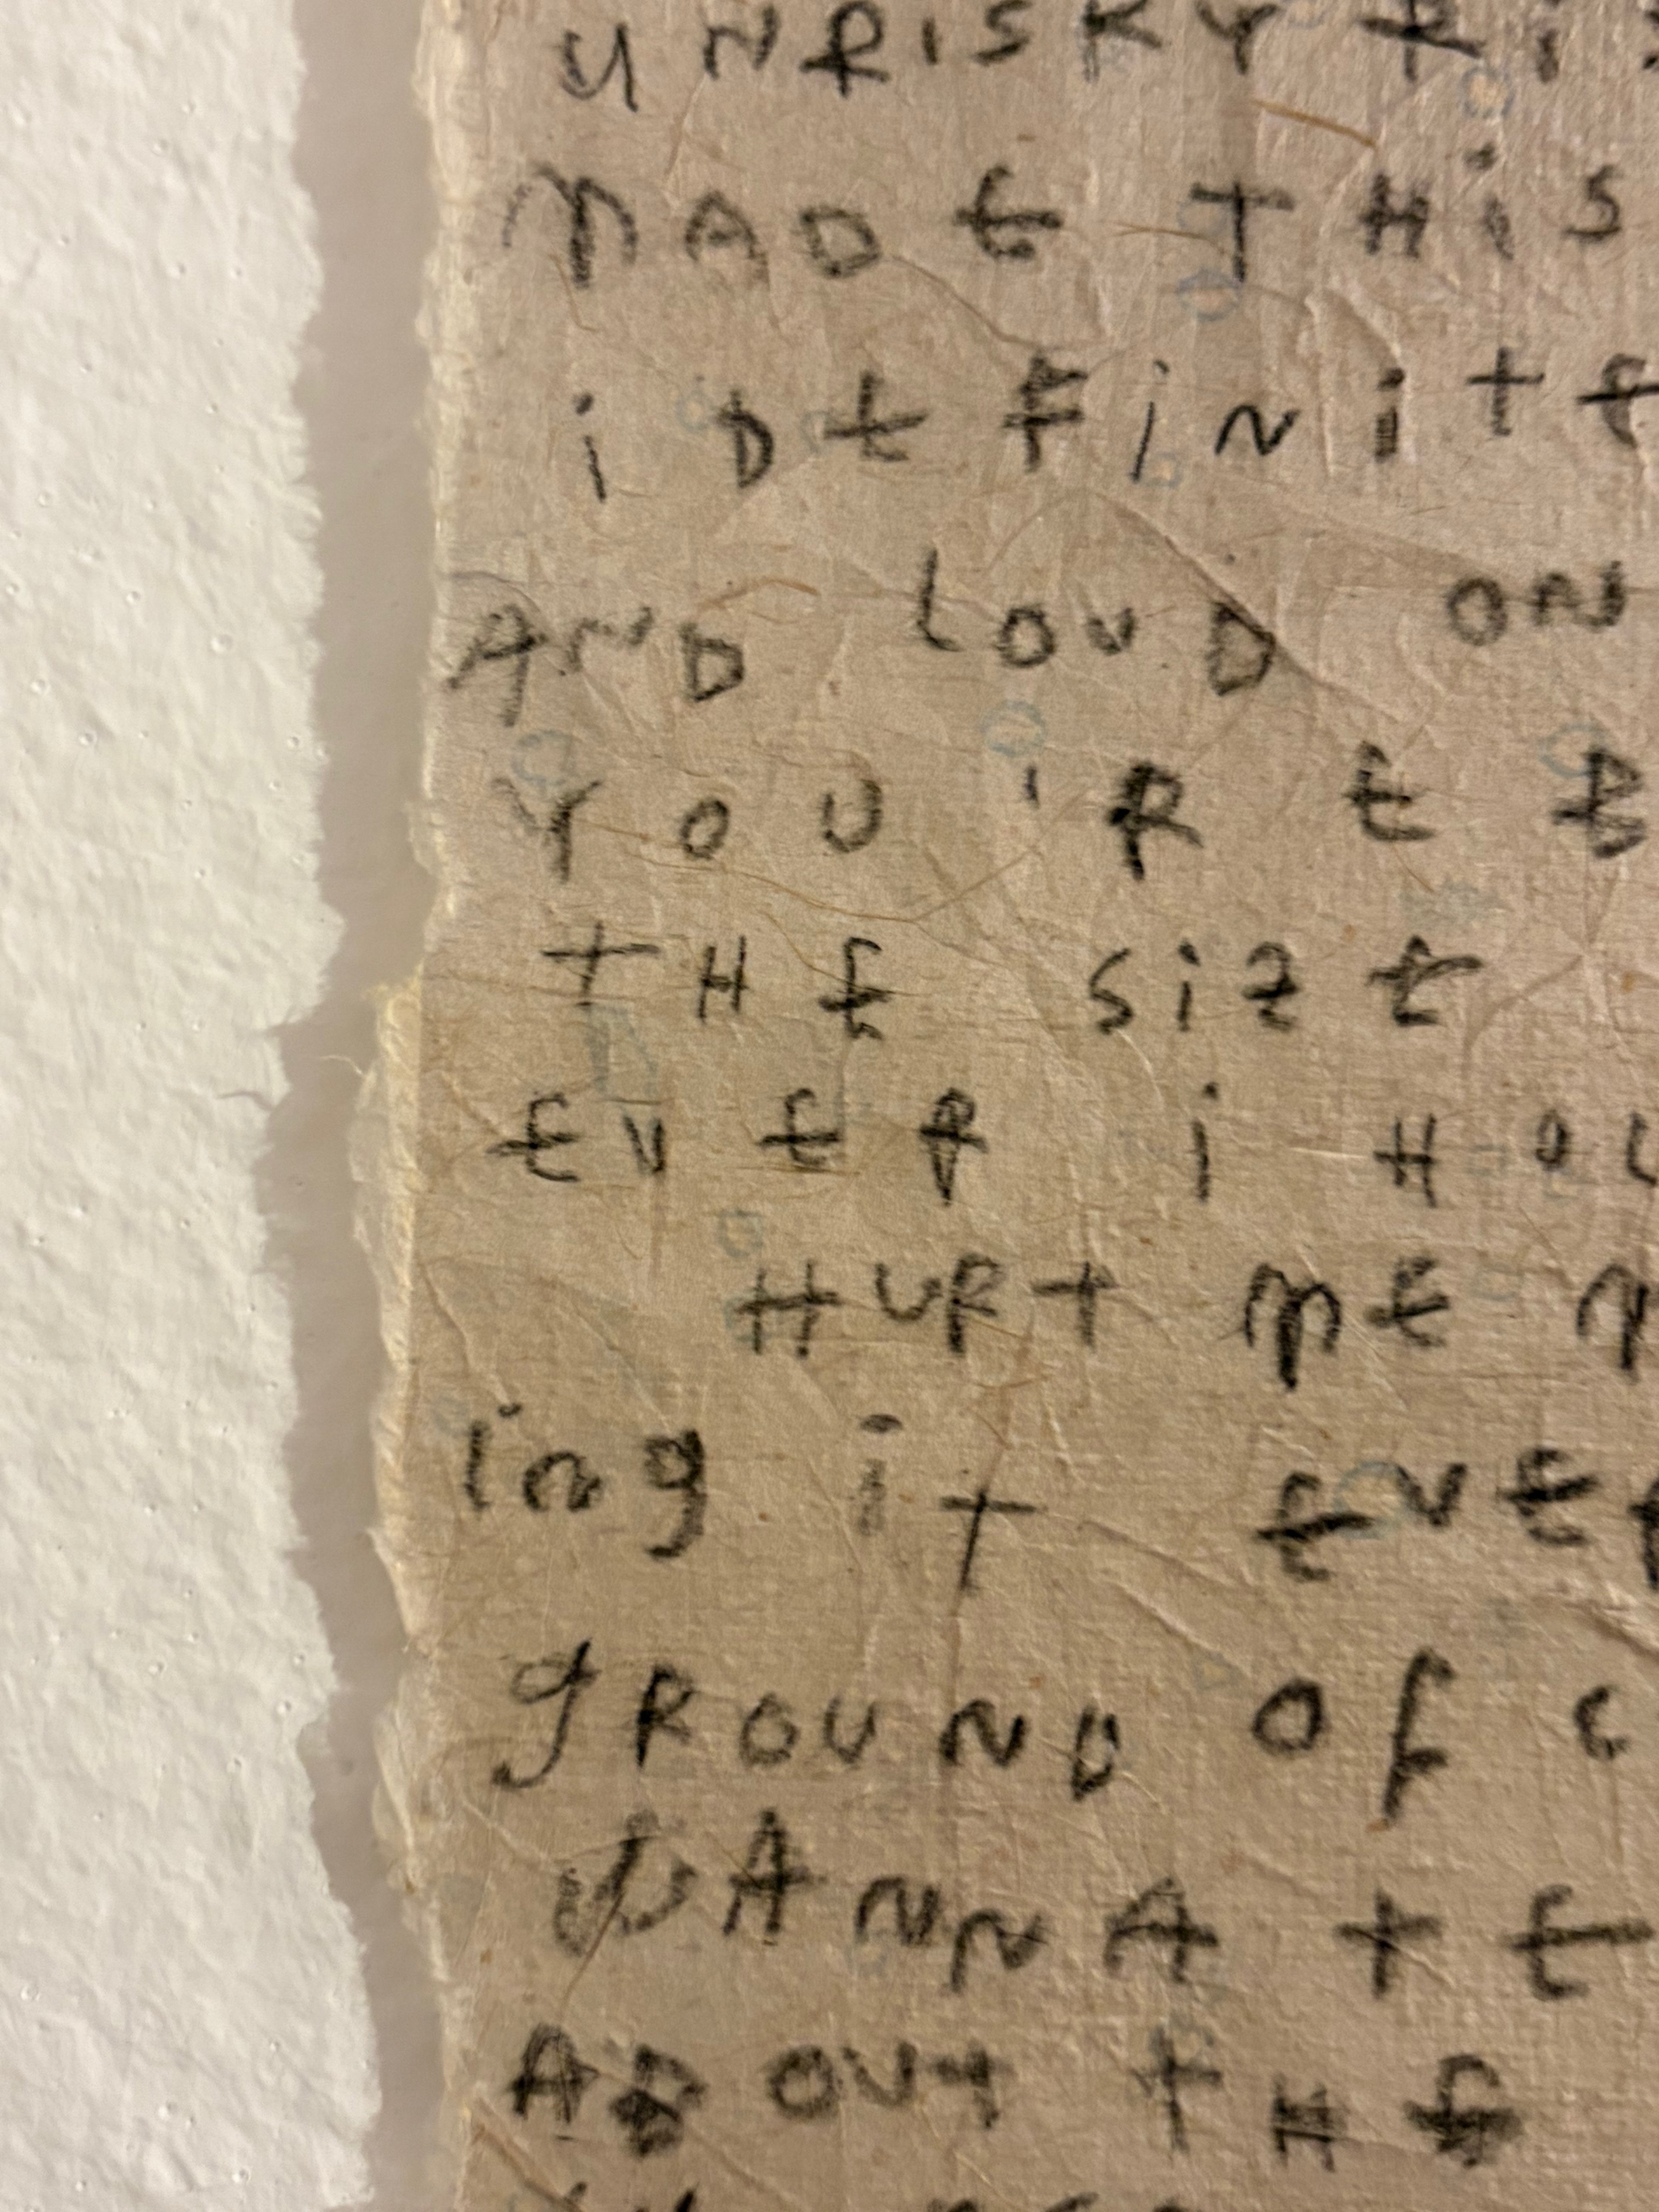 UNRISKY
MADE THIS
i DEFiNiTE
AND LOUD ON
YOU'RE
THE SiZE
EVER i HOL
HURT ME
ing it EVE
gROUND Of
WANNA
ABOUT THE